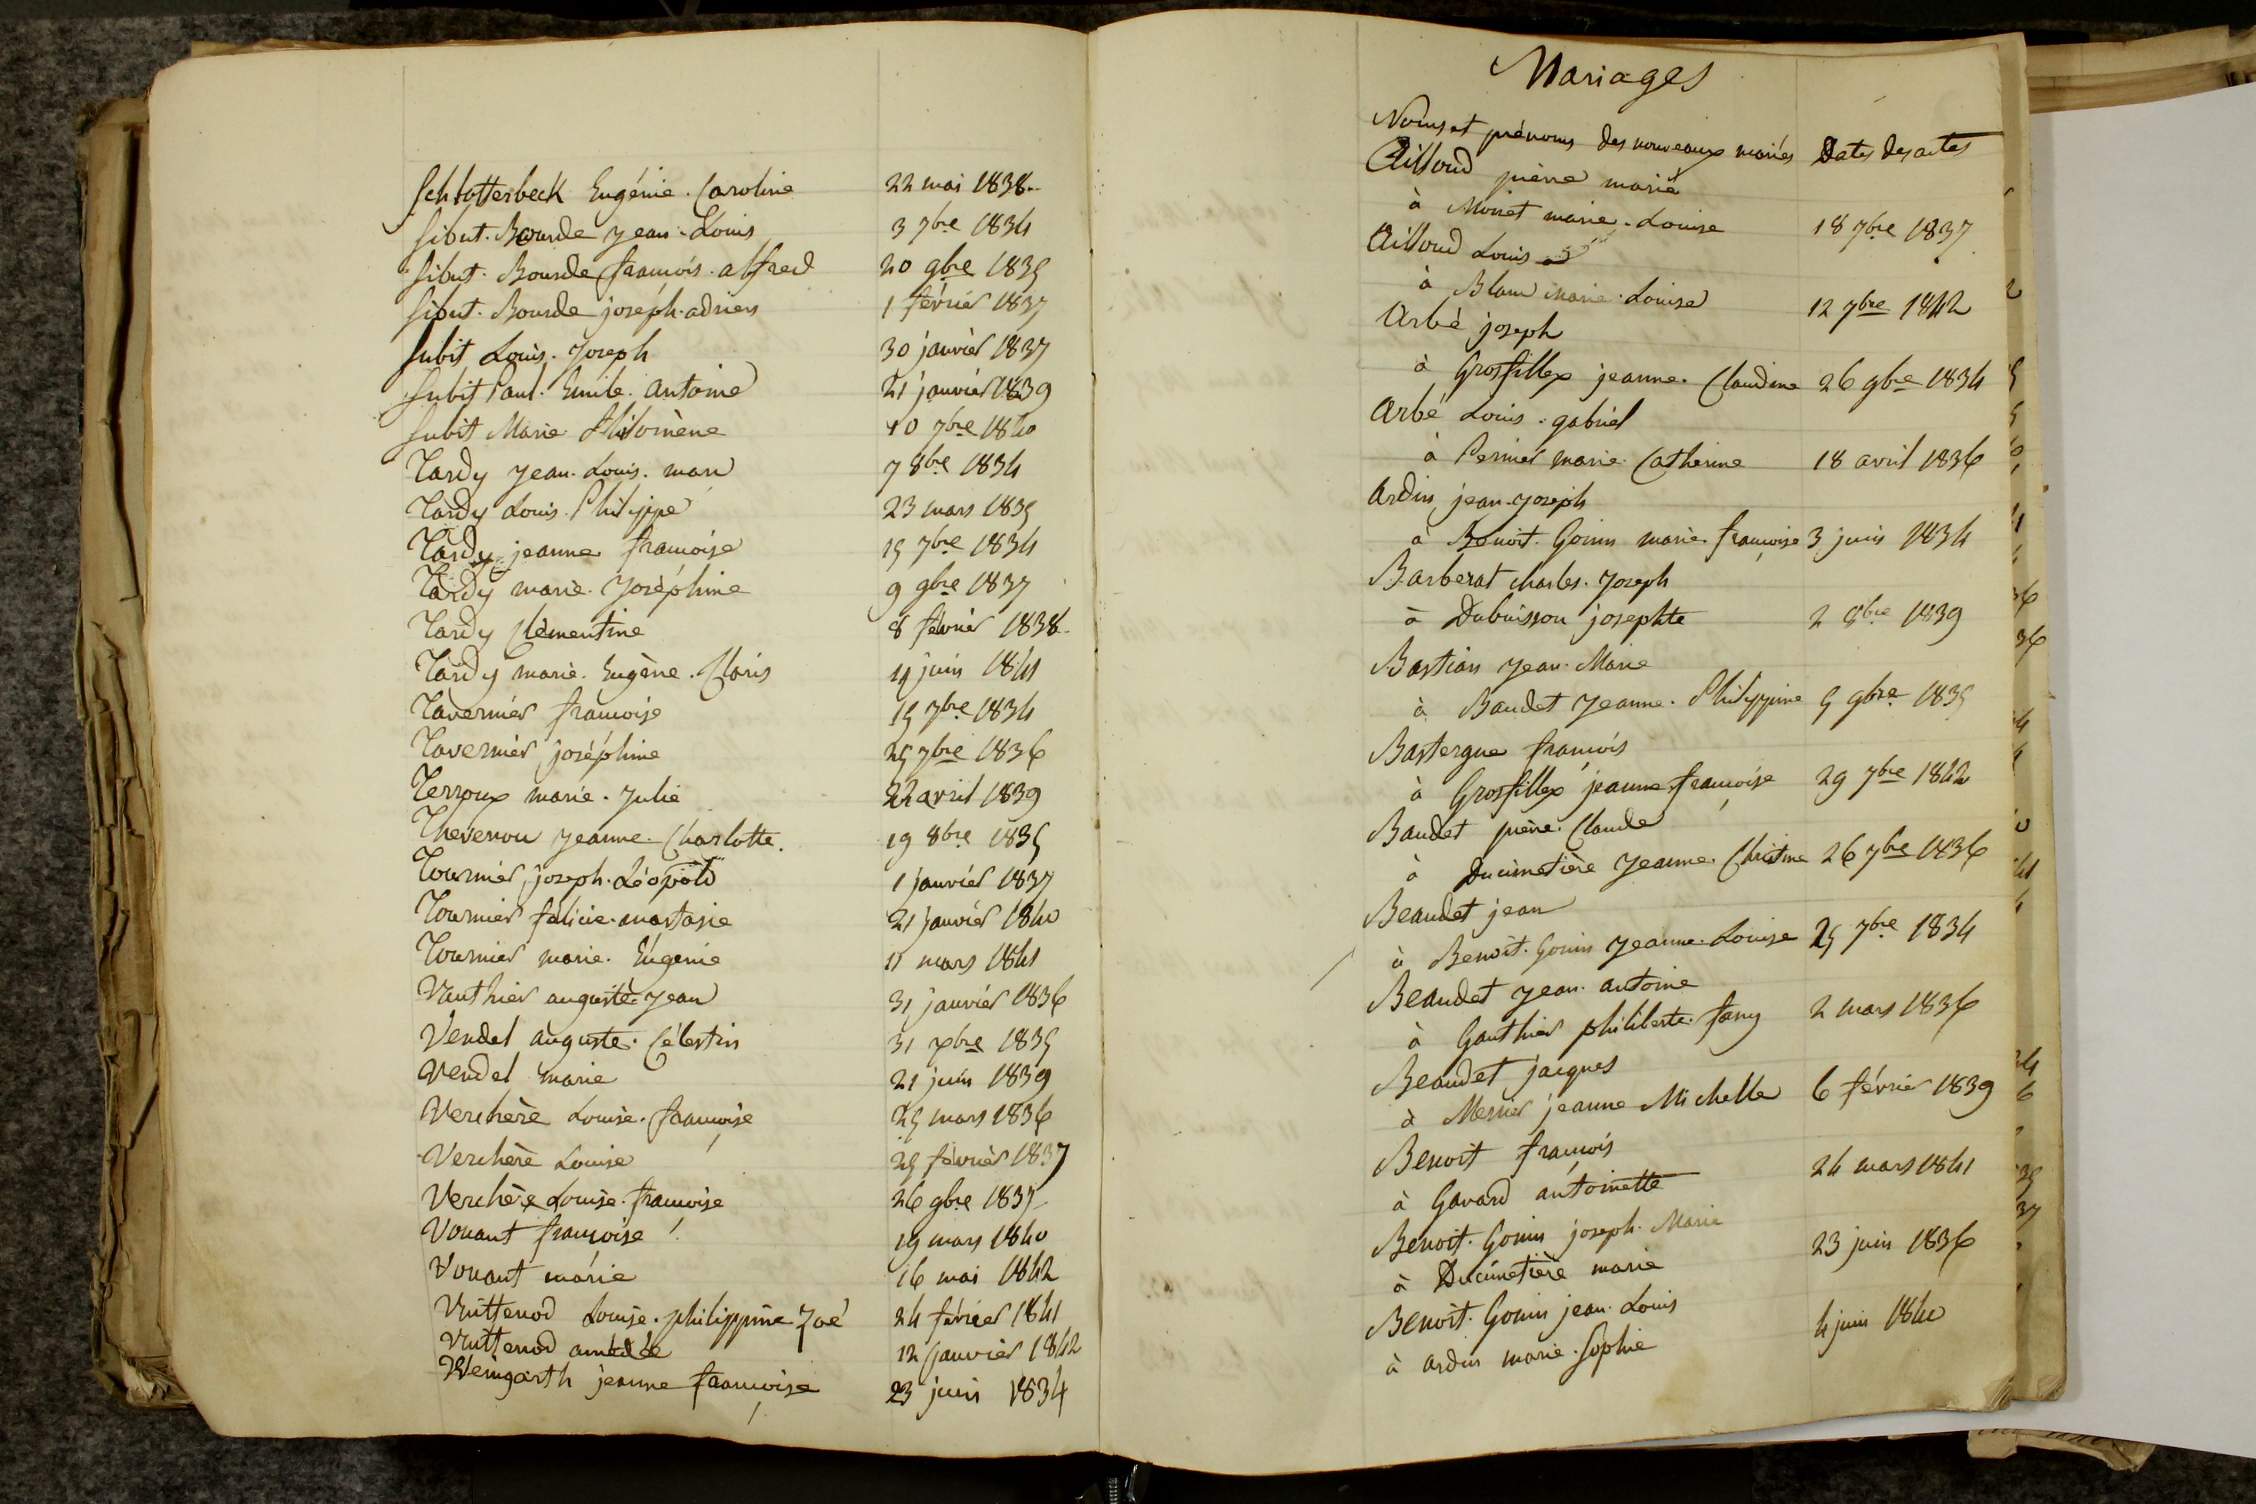 Schlotterbeck Eugénie. Caroline 22 mai 1838
Sibut. Bourde Jean. Louis 3 7bre 1834
Sibut. Bourde françois. alfred 20 9bre 1835
Sibut. Bourde joseph. adrien 1 février 1837
Subit Louis. Joseph 30 janvier 1837
Subit Paul. Emile. antoine 21 janvier 1839
Subit Marie Philomène 10 7bre 1840
Tardy Jean. Louis. marie 7 8bre 1834
Tardy Louis. Philippe 23 mars 1835
Tardy jeanne françoise 15 7bre 1834
Tardy marie. Joséphine 9 9bre 1837
Tardy Clémentine 8 février 1838
Tardy marie. Eugène. Claris juin 1841
Tavernier françoise 15 7bre 1834
Tavernier joséphine 25 7bre 1836
Terroux marie. Julie 22 avril 1839
Thevenou Jeanne. Charlotte. 19 8bre 1835
Tournier joseph. Léopold 1 janvier 1837
Tournier félicie. anastasie 21 janvier 1840
Tournier marie. Eugénie 11 mars 1841
Vauthier auguste. Jean 31 janvier 1836
Vendel auguste. Célestin 31 xbre 1835
Vendel marie 21 juin 1839
Verchère Louise. françoise 25 mars 1836
Verchère Louise 25 février 1837
Verchère Louise. françoise 26 9bre 1837
Vouant françoise 19 mars 1840
Vouant marie 16 mai 1842
Vuittenod Louise. philippine Zoé 24 février 1841
Vuittenod amédée 12 janvier 1842
Weingarth jeanne françoise 23 juin 1834
Mariages
Noms et prénoms des nouveaux mariés Dates des actes
Ailloud pierre marie
à Moiret marie. Louise 18 7bre 1837
Ailloud Louis
à Blanc marie. Louise 12 7bre 1842
Arbé joseph
à Grosfillex jeanne. Claudine 26 9bre 1834
Arbé Louis. gabriel
à Pernier marie. Catherine 18 avril 1836
Ardin jean. joseph
à Benoit. Gonin marie. françoise 3 juin 1834
Barberat charles. Joseph
à Dubuisson josephte 2 8bre 1839
Bastian Jean. Marie
à Baudet Jeanne. Philippine 5 9bre 1835
Bastergue françois
à Grosfillex jeanne. françoise 29 7bre 1842
Baudet pierre. Claude
à Ducimetière Jeanne. Christine 26 7bre 1836
Beaudet jean
à Benoit. Gonin Jeanne. Louise 25 7bre 1834
Beaudet Jean. antoine
à Gauthier philiberte. fany 2 mars 1836
Beaudet jacques
à Mernier jeanne Michelle 6 février 1839
Benoit françois
à Gavard antoinette 24 mars 1841
Benoit. Gonin joseph. Marie
à Ducimetière marie 23 juin 1836
Benoit. Gonin jean. Louis
à ardin marie. Sophie 4 juin 1840